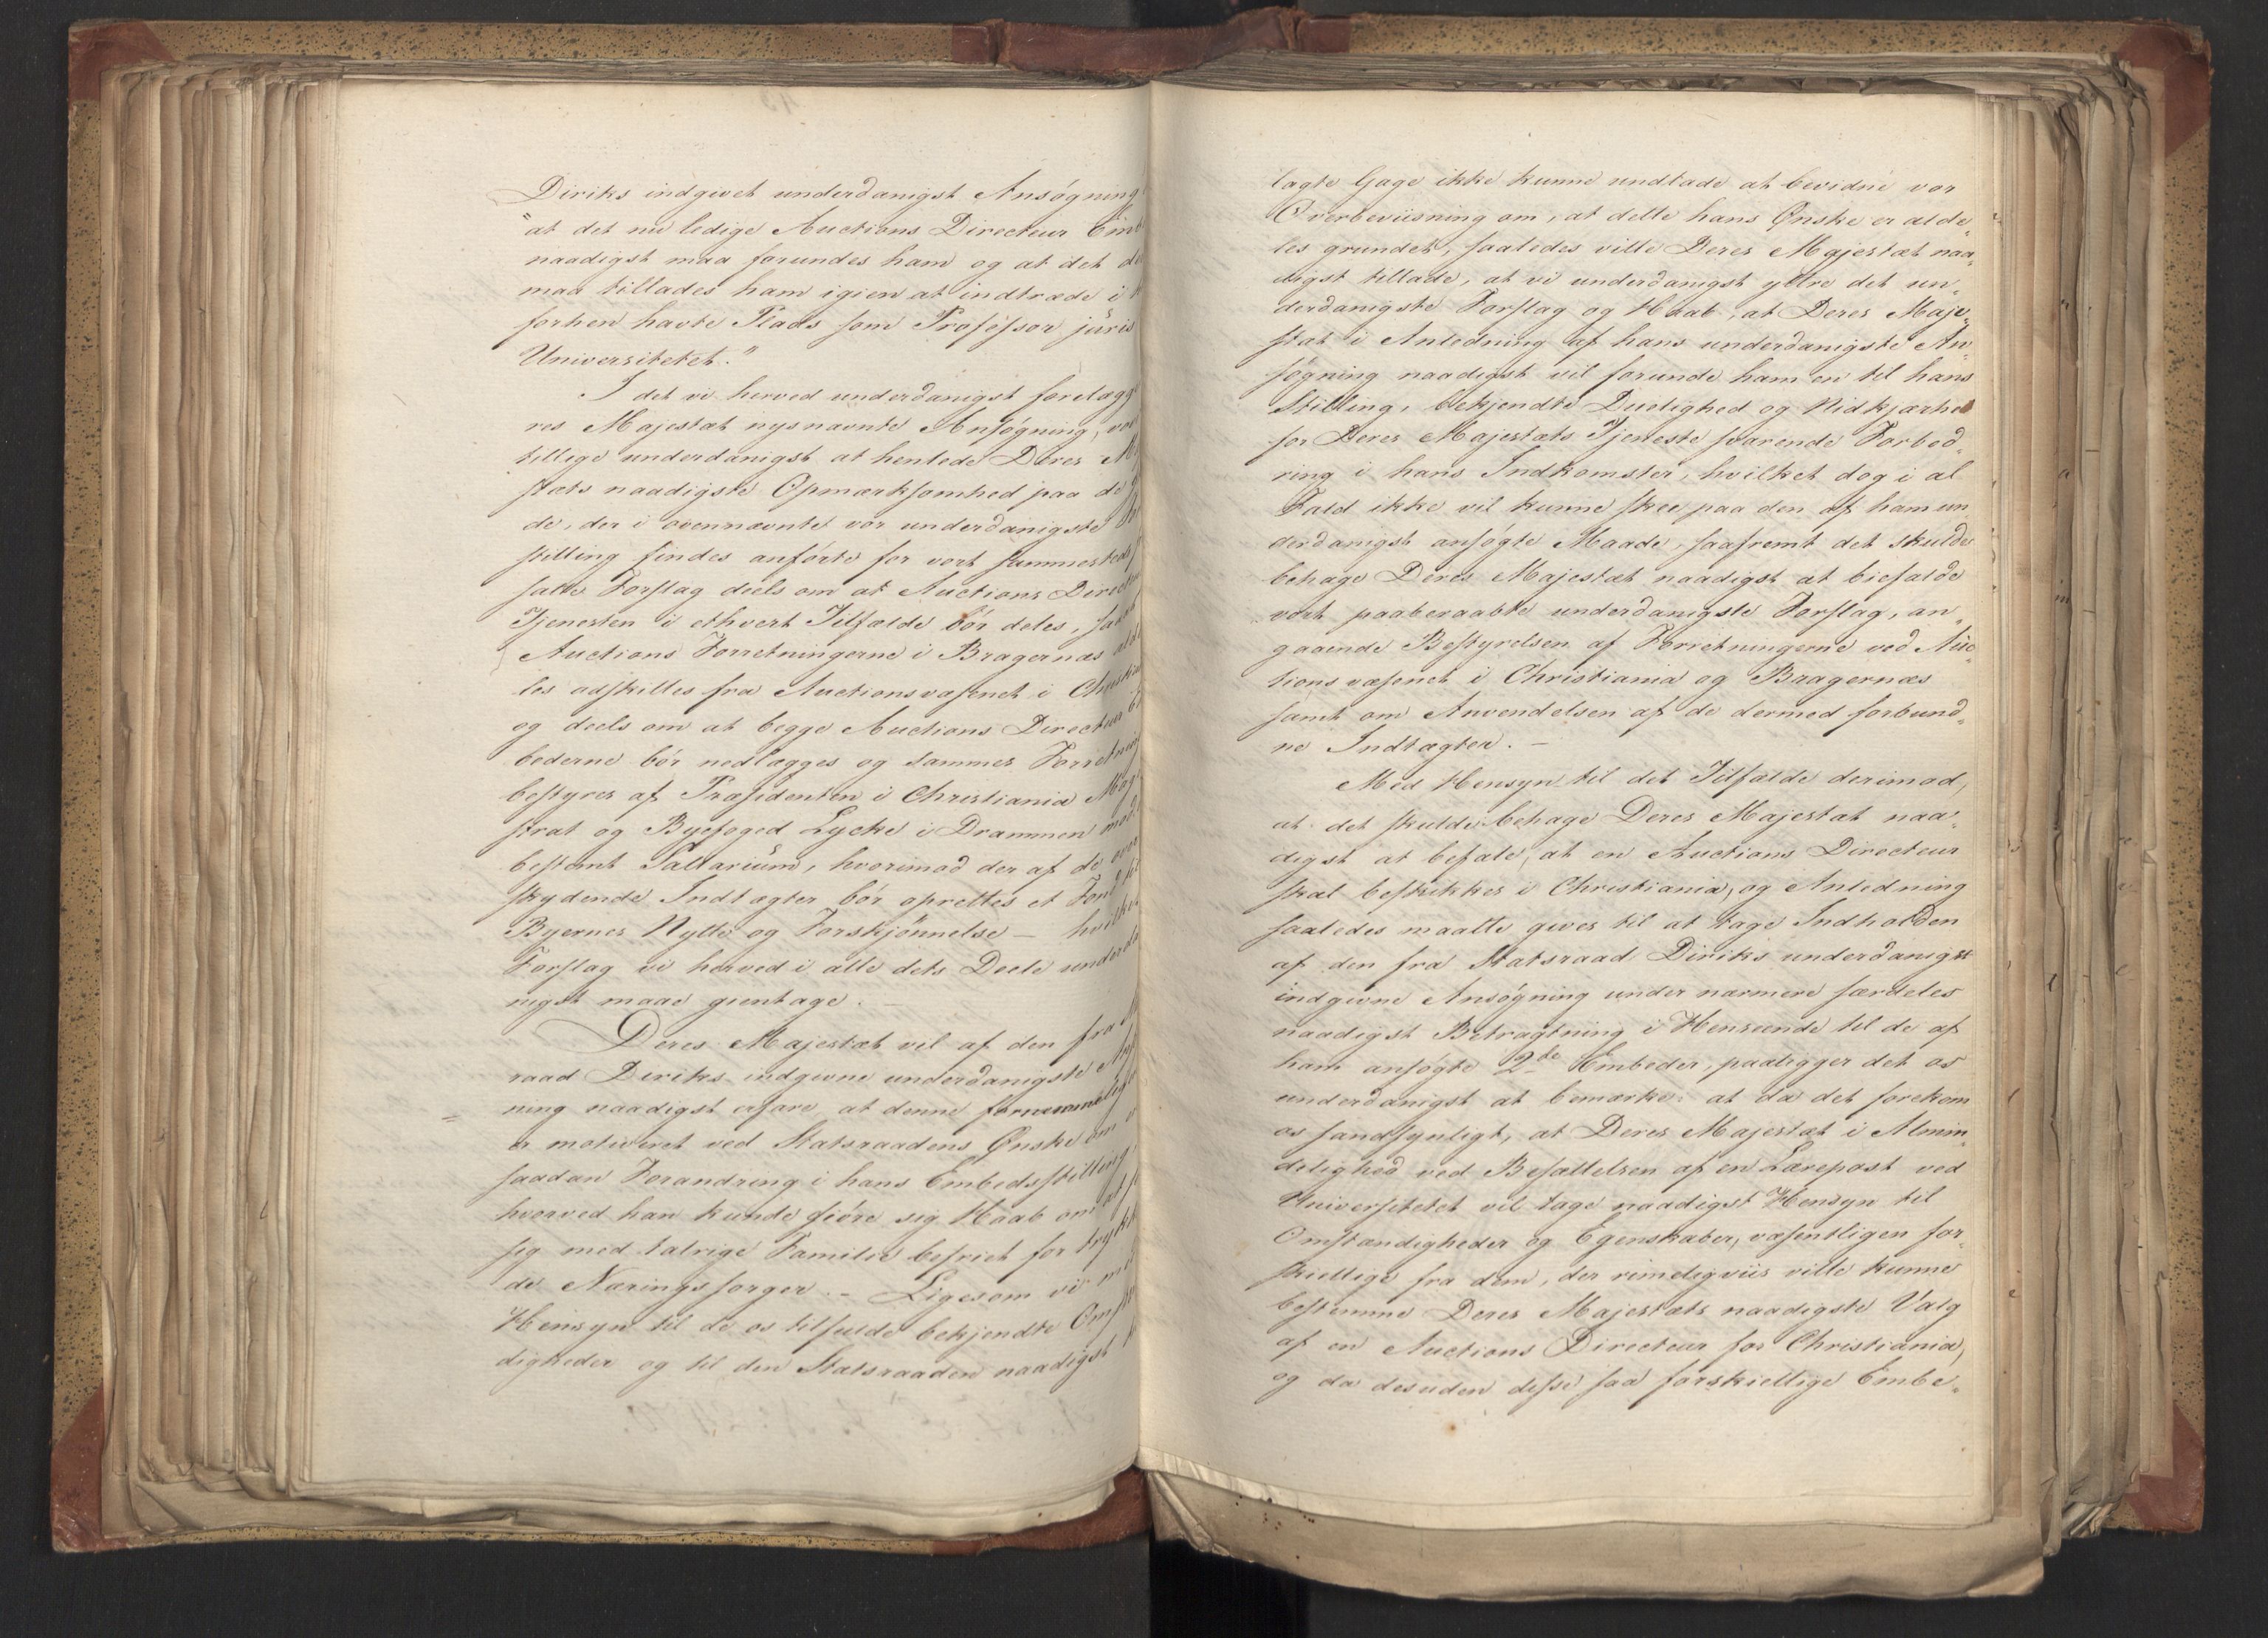 Diriks indgivet underdanigst Ansøgning
"at det nu ledige Auctions Directeur Emb
naadigst maa forundes ham og at det
maa tillades ham igien at indtræde i
forhen havte Plads som Professor juris
Universitetet."
I det vi herved underdanigst forelægge
res Majestæt nysnævnte Ansøgning,
tillige underdanigst at henlede Deres
stæts naadigste Opmærksomhed paa de
de, der i ovennævnte vor underdanigste
stilling findes anførte for vort sammesteds
satte Forslag deels om at Auctions Direct
Tjenesten i ethvert Tilfælde bør deles,
Auctions Forretningerne i Bragernæs alde
les adskilles fra Auctionsvæsenet i Christia
og deels om at begge Auctions Directeur
bederne bør nedlægges og sammes Forretning
bestyres af Præsidenten i Christiania Mag
strat og Byefoged Lycke i Drammen mod
bestemt Sallarium, hvorimod der af de over
skydende Indtægter bør oprettes et Fond til
Byernes Nytte og Forskjønnelse – hvilket
Forslag vi herved i alle dets Deele underda
nigst maae gientage. –
Deres Majestæt vil af den fra
raad Diriks indgivne underdanigste
ning naadigst erfare, at denne fornemmelig
er motiveret ved Statsraadens Ønske om
saadan Forandring i hans Embedsstilling,
hvorved han kunde giøre sig Haab om at
sig med talrige Familie befriet for trykk
de Næringssorger. – Ligesom vi
Hensyn til de os tilfulde bekjendte Omst
digheder og til den Statsraaden naadigst
lagte Gage ikke kunne undlade at bevidne vor
Overbeviisning om, at dette hans Ønske er alde„
les grundet, saaledes ville Deres Majestæt naa„
digst tillade, at vi underdanigst yttre det un„
derdanigste Forslag og Haab, at Deres Maje„
stæt i Anledning af hans underdanigste An„
søgning naadigst vil forunde ham en til hans
Stilling, bekjendte Duelighed og Nidkjærhed
for Deres Majestæts Tjeneste svarende Forbed„
ring i hans Indkomster, hvilket dog i al
Fald ikke vil kunne skee paa den af ham un„
derdanigst ansøgte Maade, saafremt det skulde
behage Deres Majestæt naadigst at biefalde
vort paaberaabte underdanigste Forslag, an„
gaaende Bestyrelsen af Forretningerne ved Auc„
tionsvæsenet i Christiania og Bragernæs
samt om Anvendelsen af de dermed forbund„
ne Indtægter. –
Med Hensyn til det Tilfælde derimod,
at det skulde behage Deres Majestæt naa„
digst at befale, at en Auctions Directeur
skal beskikkes i Christiania, og Anledning
saaledes maatte gives til at tage Indholden
af den fra Statsraad Diriks underdanigst
indgivne Ansøgning under nærmere særdeles
naadigst Betragtning i Henseende til de af
ham ansøgte 2de Embeder, paaligger det os
underdanigst at bemærke: at da det forekom
os sandsynligt, at Deres Majestæt i Almin„
delighed ved Besættelsen af en Lærepost ved
Universitetet vil tage naadigst Hensyn til
Omstændigheder og Egenskaber, væsentligen for„
skiellige fra dem, der rimeligviis ville kunne
bestemme Deres Majestæts naadigste Valg
af en Auctions Directeur for Christiania,
og da desuden disse saa forskiellige Embe„